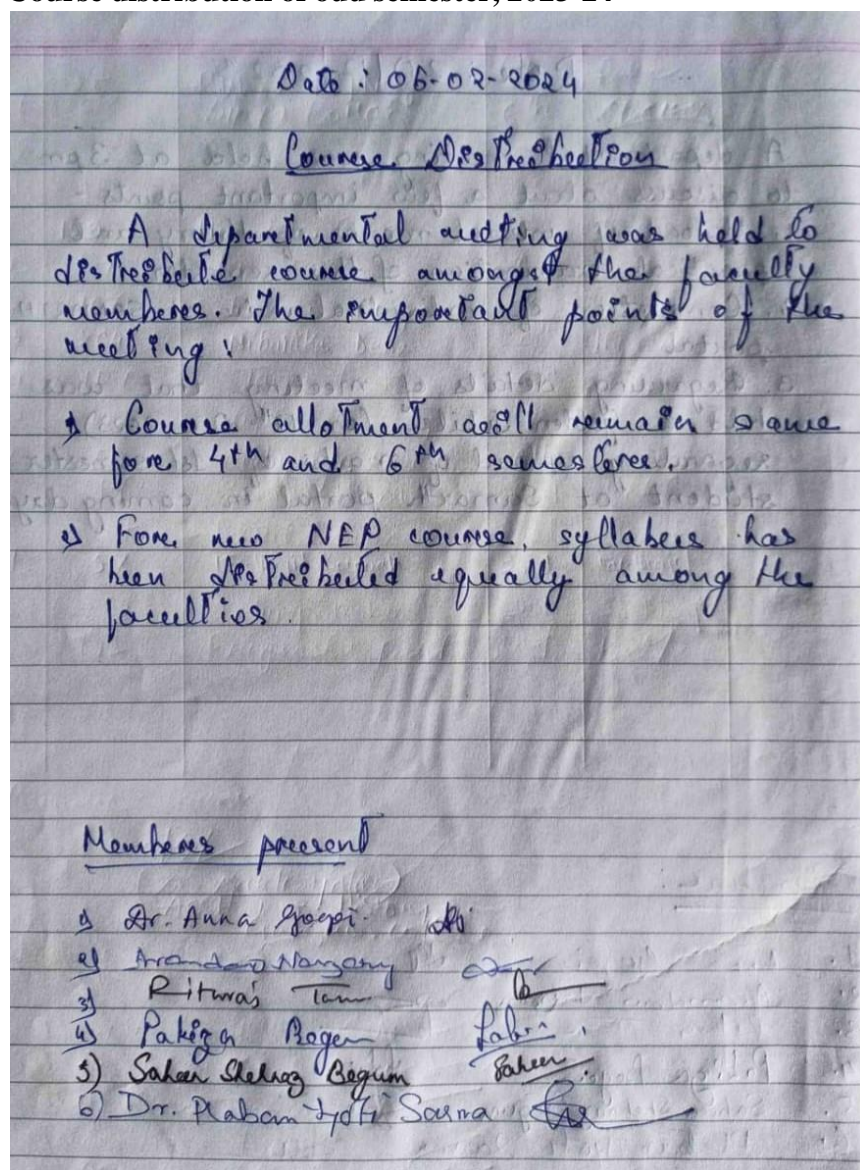 Course distribution of odd semester, 2023-24
Date : 06-02-2024
Course Distribution
A departmental meeting was held to
distribute course amongst the faculty
members. The important points of the
meeting :
1) Course allotment will remain same
for 4th and 6th semesters.
2) For new NEP course, syllabus has
been distributed equally among the
faculties.
Members present
1) Dr. Anna
2) Narzary
3) Rituraj
4) Pakiza Begum
5) Saheen Begum Saheen
6) Dr. Plaban Jyoti Sarma